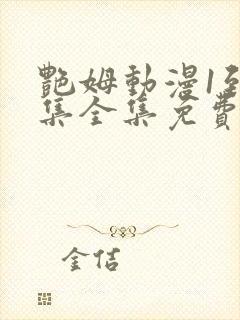 艷姆動漫1至
集全集免費
金佶